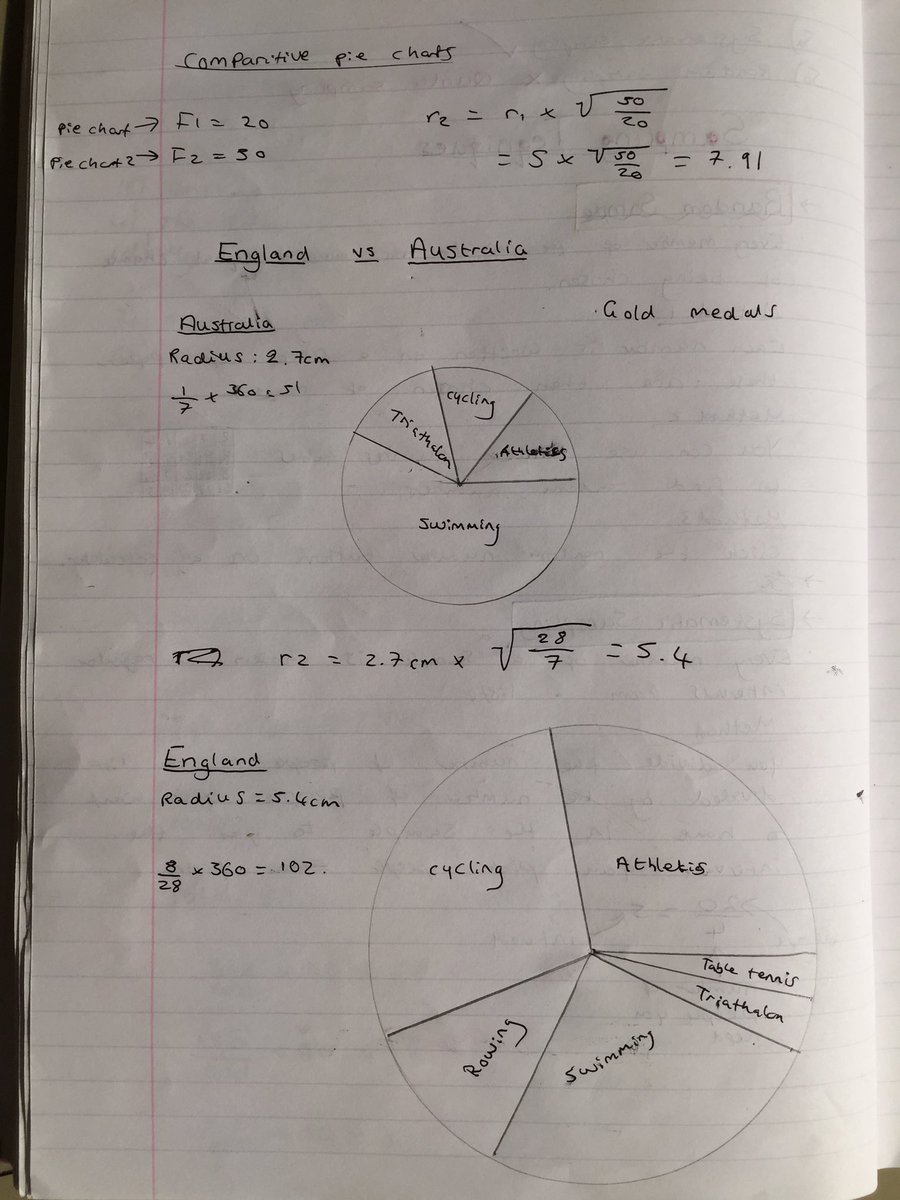 Comparitive pie charts
Pie chart → F1 = 20
Pie chart 2 → F2 = 50
r2 = r1 × √50/20
= 5 × √50/20 = 7.91
England vs Australia
Gold medals
Australia
Radius : 2.7cm
1/7 × 360 = 51
Cycling
Triathalon
Athletics
Swimming
r2 = 2.7cm × √28/7 = 5.4
England
Radius = 5.4cm
8/28 × 360 = 102.
cycling
Athletics
Table tennis
Triathalon
Rowing
Swimming